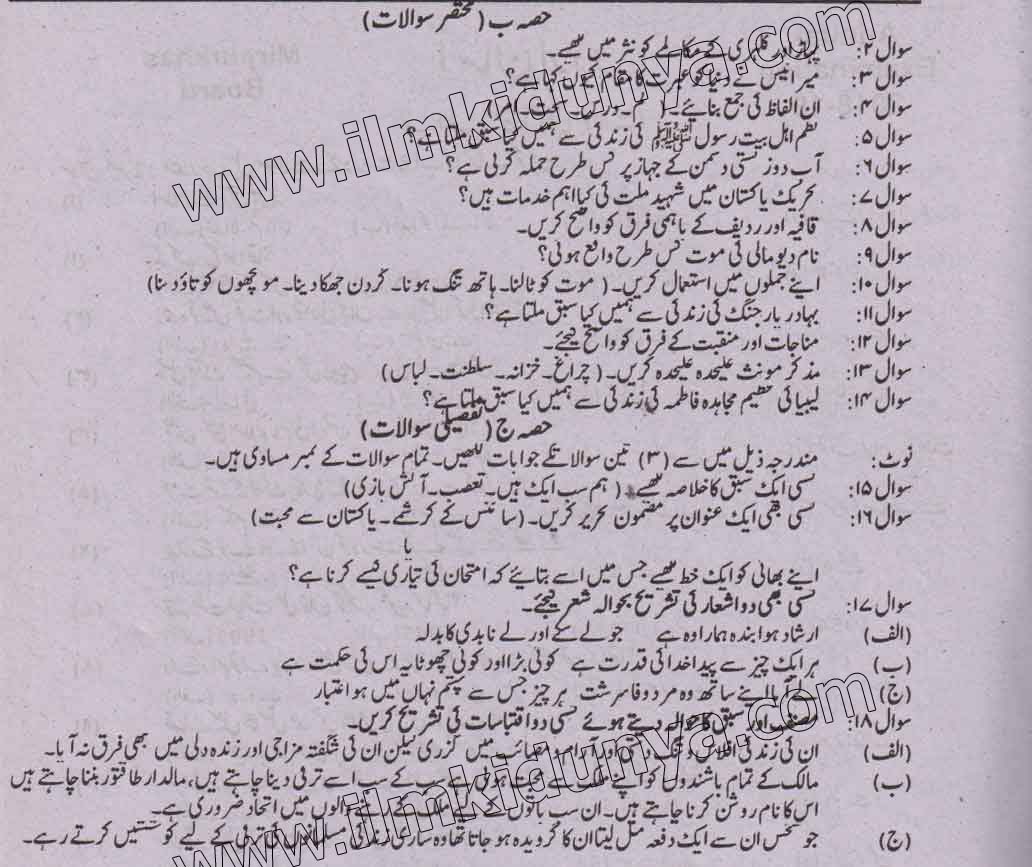 حصہ ب (مختصر سوالات)
سوال ۲: پہاڑ اور گلہری کے مکالمے کو نثر میں لکھیے۔
سوال ۳: میر انیس نے دنیا کو عبرت کا مقام کیوں کہا ہے؟
سوال ۴: ان الفاظ کی جمع بنائیے۔ ( درس۔
سوال ۵: نظم اہل بیت رسول ﷺ کی زندگی سے ہمیں کیا سبق ملتا ہے؟
سوال ۶: آب دوز کشتی دشمن کے جہاز پر کس طرح حملہ کرتی ہے؟
سوال ۷: تحریک پاکستان میں شہید ملت کی کیا اہم خدمات ہیں؟
سوال ۸: قافیہ اور ردیف کے باہمی فرق کو واضح کریں۔
سوال ۹: نام دیو مالی کی موت کس طرح واقع ہوئی؟
سوال ۱۰: اپنے جملوں میں استعمال کریں۔ ( موت کو ٹالنا۔ ہاتھ تنگ ہونا۔ گردن جھکا دینا۔ مونچھوں کو تاؤ دینا)
سوال ۱۱: بہادر یار جنگ کی زندگی سے ہمیں کیا سبق ملتا ہے؟
سوال ۱۲: مناجات اور منقبت کے فرق کو واضح کیجئے۔
سوال ۱۳: مذکر مونث علیحدہ علیحدہ کریں۔ ( چراغ۔ خزانہ۔ سلطنت۔ لباس)
سوال ۱۴: لیبیائی عظیم مجاہدہ فاطمہ کی زندگی سے ہمیں کیا سبق ملتا ہے؟
حصہ ج ( تفصیلی سوالات)
نوٹ: مندرجہ ذیل میں سے (۳) تین سوالات کے جوابات لکھیں۔ تمام سوالات کے نمبر مساوی ہیں۔
سوال ۱۵: کسی ایک سبق کا خلاصہ لکھیے ( ہم سب ایک ہیں۔ تعصب۔ آتش بازی)
سوال ۱۶: کسی بھی ایک عنوان پر مضمون تحریر کریں۔ (سائنس کے کرشمے۔ پاکستان سے محبت)
یا
اپنے بھائی کو ایک خط لکھیے جس میں اسے بتائیے کہ امتحان کی تیاری کیسے کرنا ہے؟
سوال ۱۷: کسی بھی دو اشعار کی تشریح بحوالہ شعر کیجئے۔
(الف) ارشاد ہوا بندہ ہمارا وہ ہے جو لے سکے اور لے نا بدی کا بدلہ
(ب) ہر ایک چیز سے پیدا خدا کی قدرت ہے کوئی بڑا اور کوئی چھوٹا یہ اس کی حکمت ہے
(ج) لے آیا اپنے ساتھ وہ مرد وفا سرشت ہر چیز جس سے چشم جہاں میں ہو اعتبار
سوال ۱۸: مصنف اور سبق کا حوالہ دیتے ہوئے کسی دو اقتباسات کی تشریح کریں۔
(الف) ان کی زندگی افلاس و تنگ دستی اور آرام و مصائب میں گزری لیکن ان کی شگفتہ مزاجی اور زندہ دلی میں بھی فرق نہ آیا۔
(ب) مالک کے تمام باشندوں کو اپنے ملک سے محبت ہوتی ہے سب کے سب اسے ترقی دینا چاہتے ہیں، مالدار طاقتور بننا چاہتے ہیں
اس کا نام روشن کرنا چاہتے ہیں۔ ان سب باتوں کے لیے ملک کے رہنے والوں میں اتحاد ضروری ہے۔
(ج) جو شخص ان سے ایک دفعہ مل لیتا ان کا گرویدہ ہو جاتا تھا وہ ساری زندگی مسلمانوں کی ترقی کے لیے کوششیں کرتے رہے۔
www.ilmkidunya.com
www.ilmkidunya.com